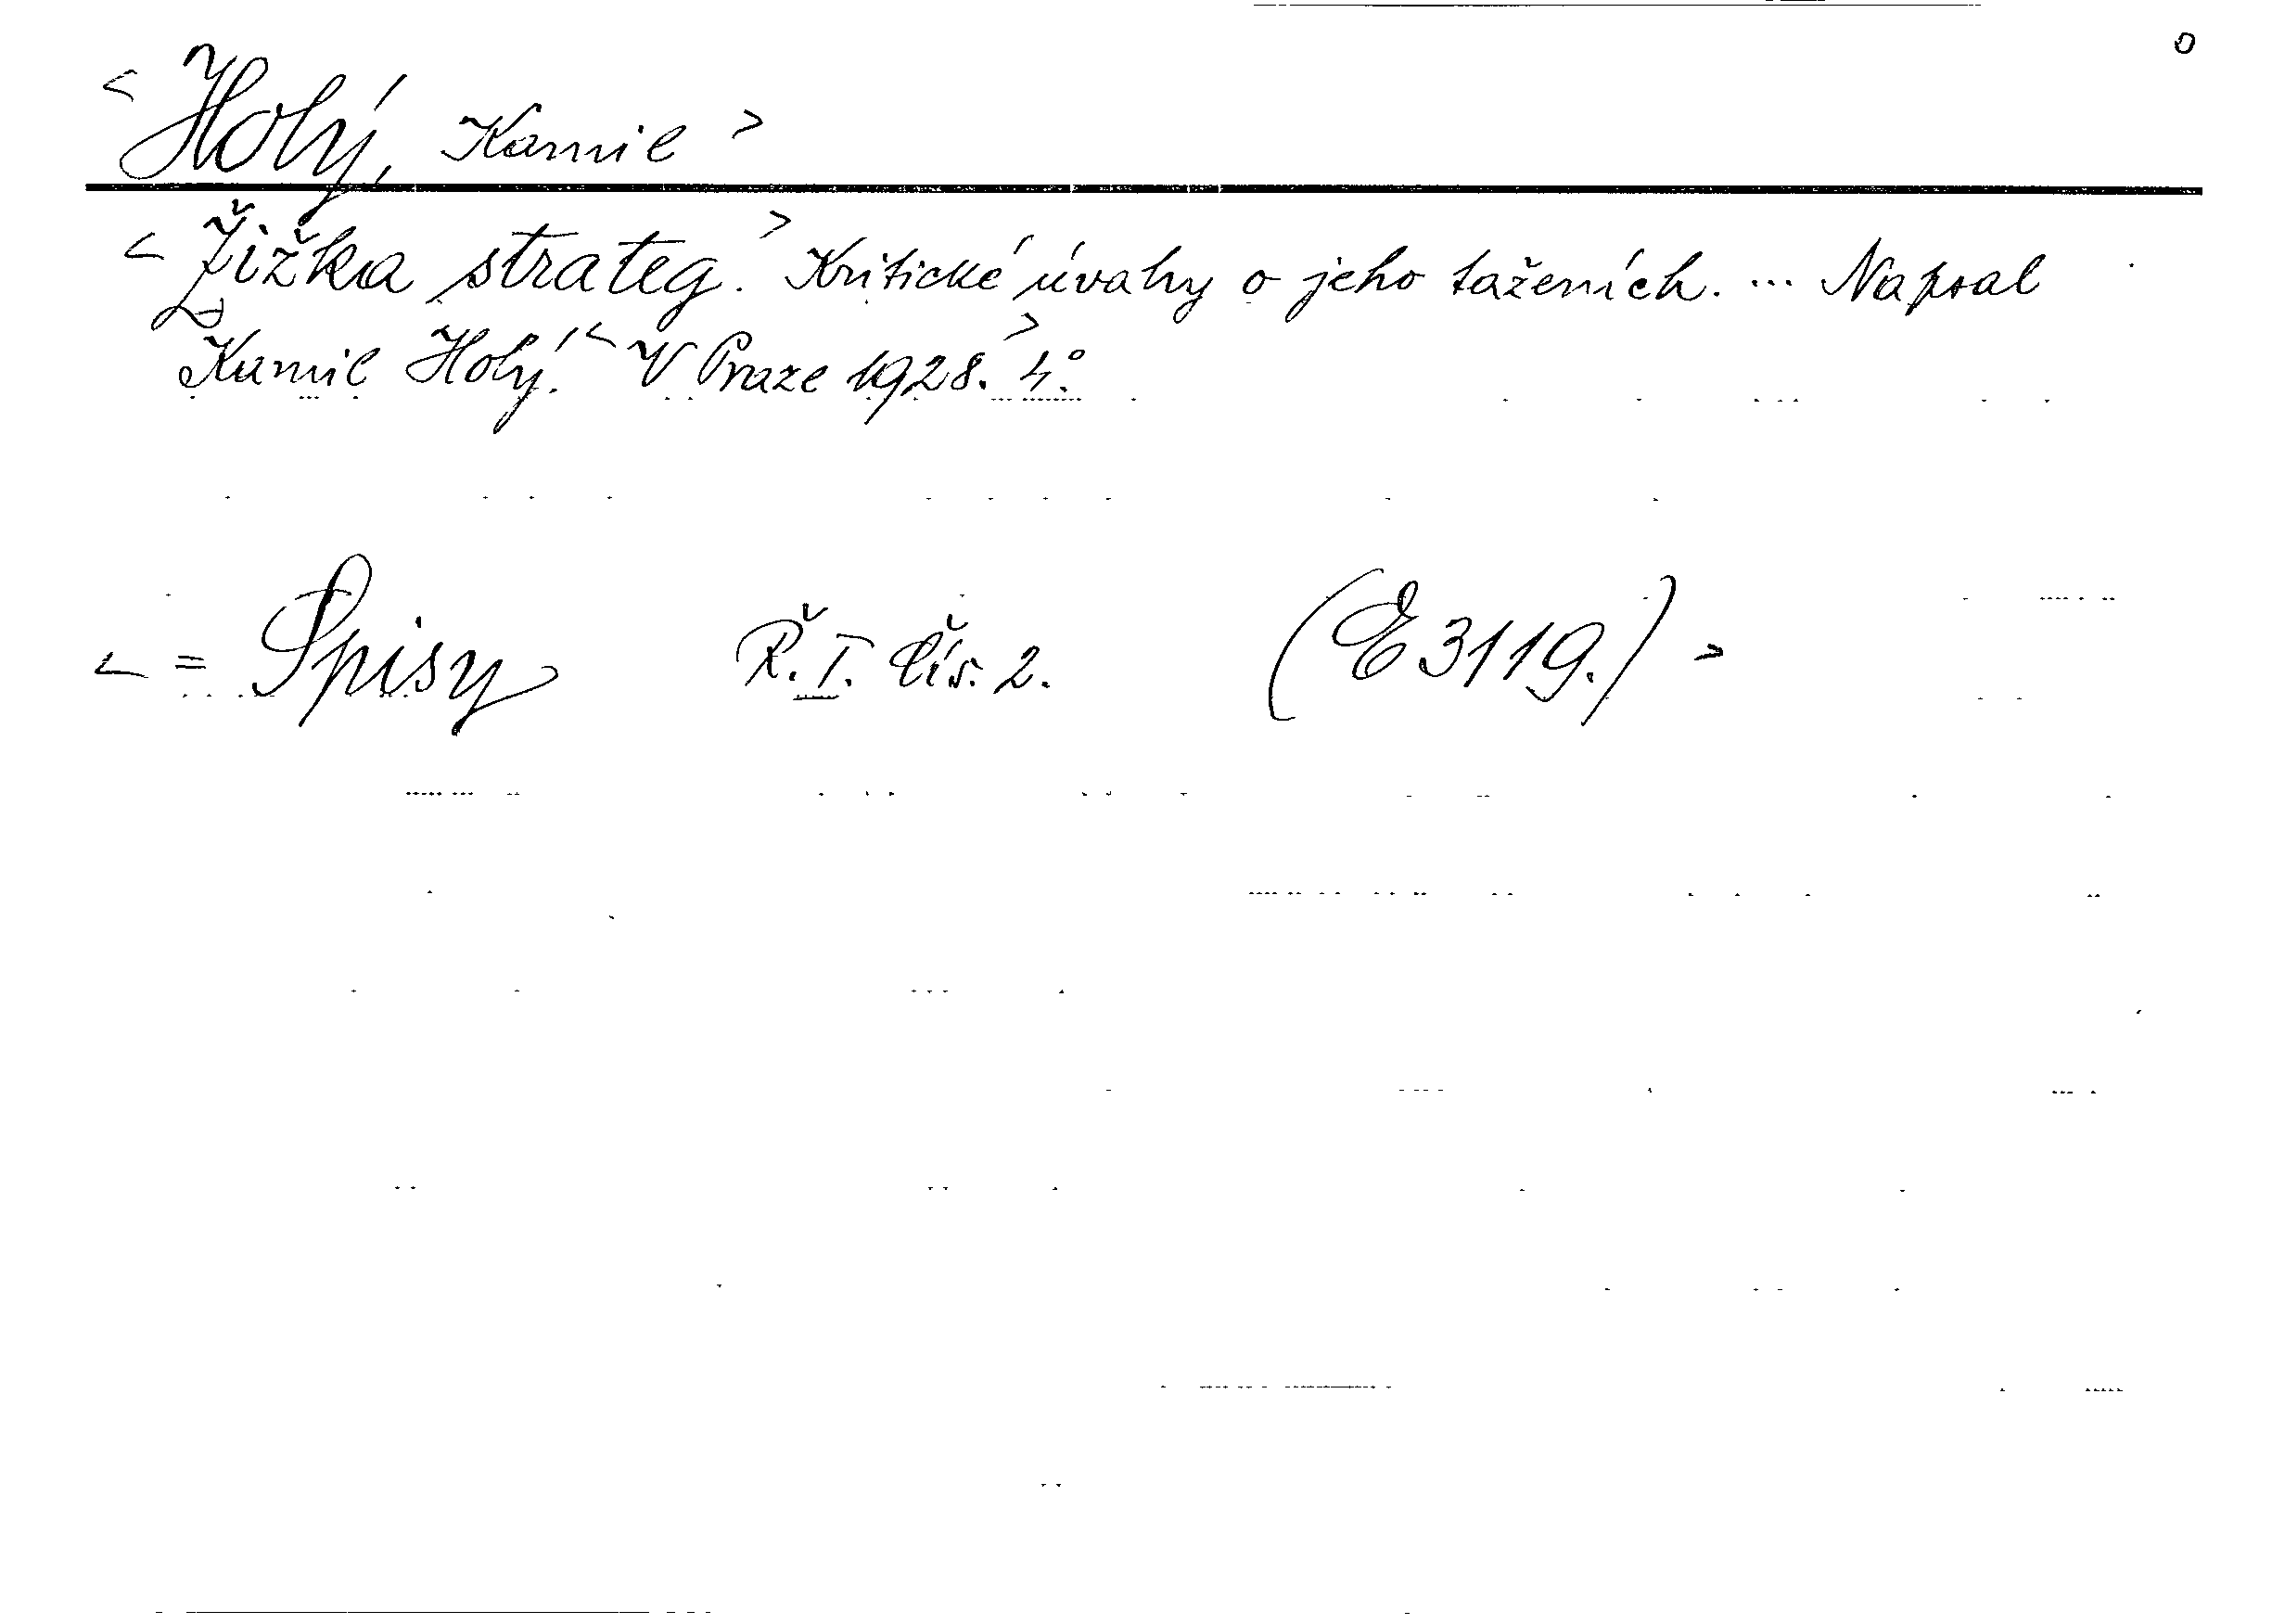 0
< Holý, Kamil >
< Žižka strateg. > Kritické úvahy o jeho taženích. ... Napsal
Kamil Holý. < V Praze 1928. > 4°.
< = Spisy Ř. I. Čís. 2. (E 3119.) >